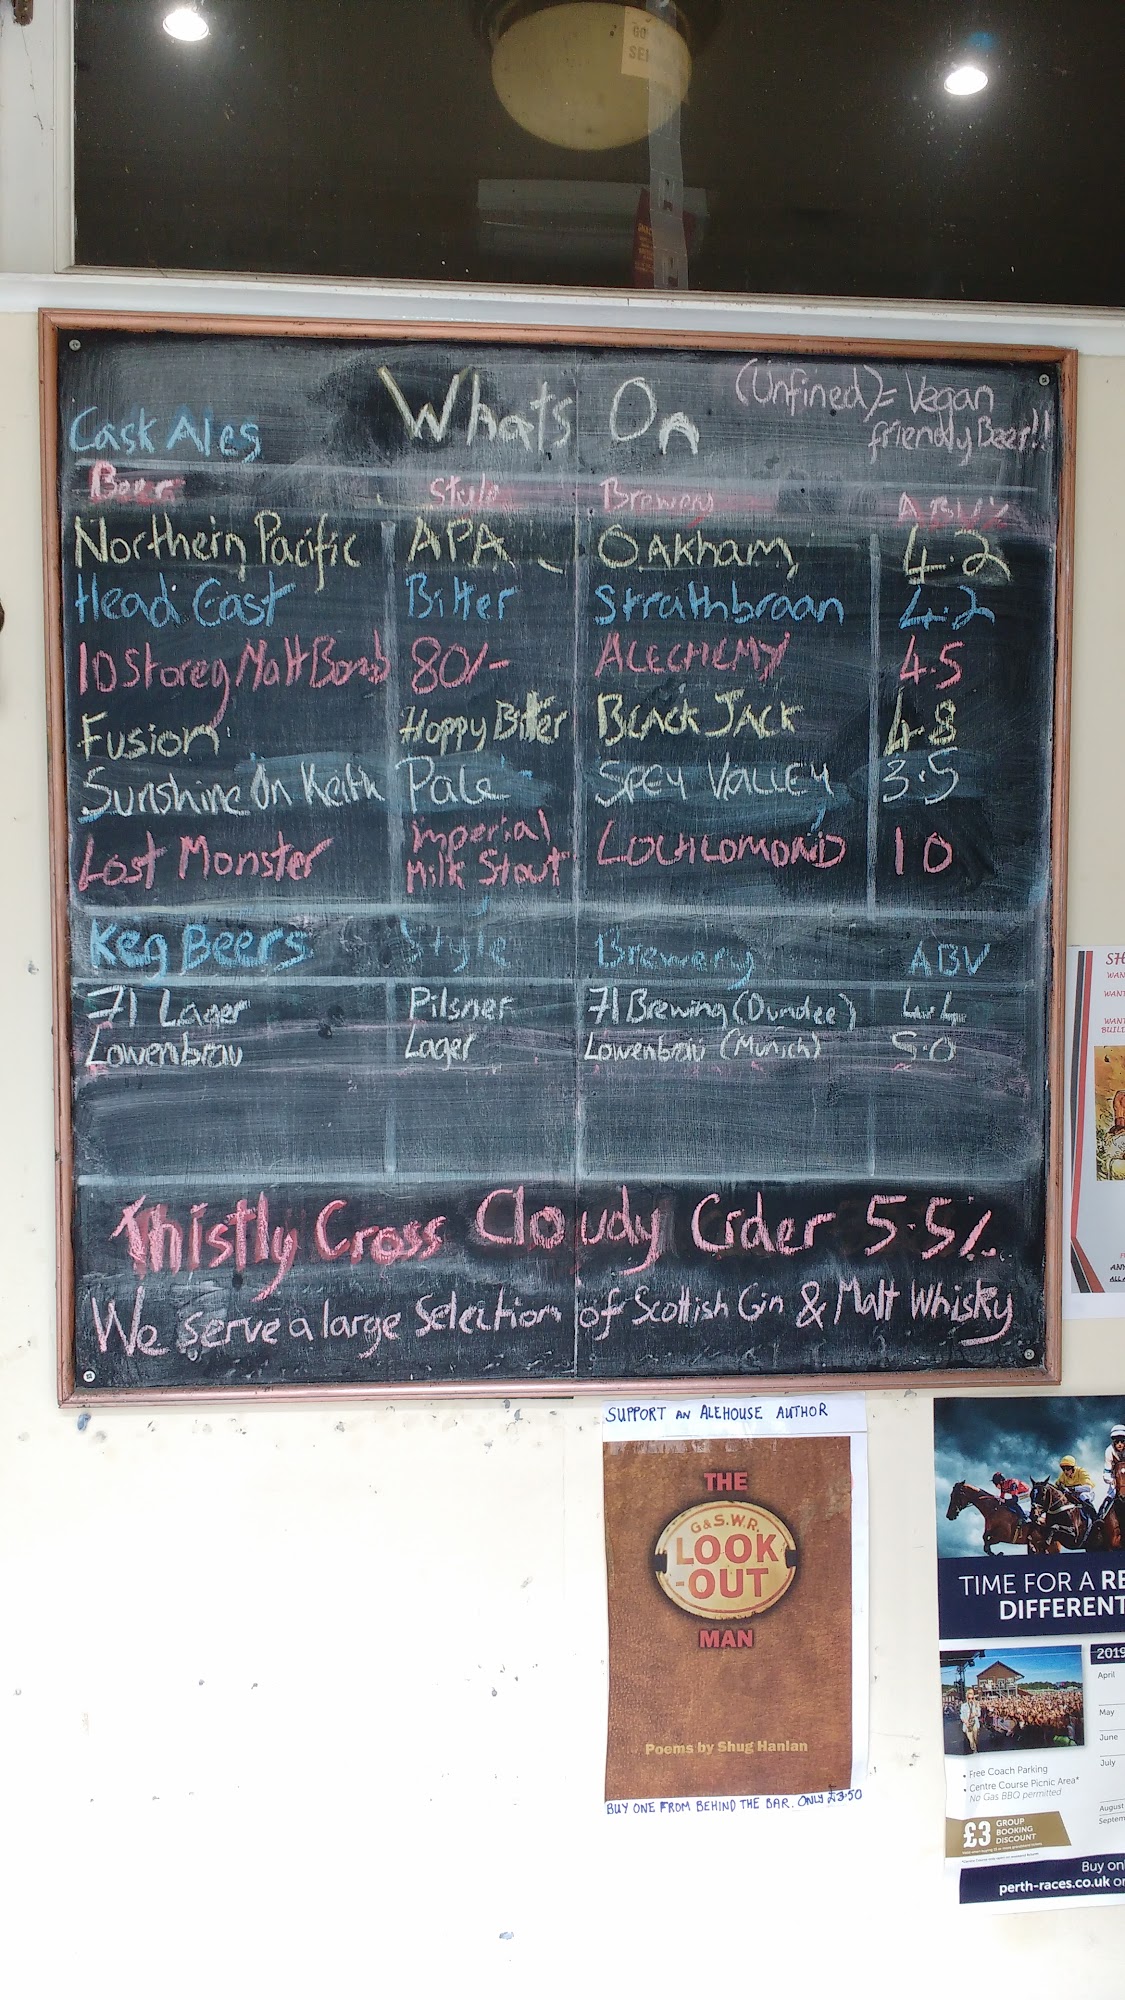 GO
SE
Whats On
(Unfined)= Vegan
friendly Beer!!
Cask Ales
Beer Style Brewery ABV%
Northern Pacific APA Oakham 4.2
Head East Bitter Straithbraan 4.2
10 Storey Malt Bomb 80/- ALECHEMY 4.5
Fusion Hoppy Bitter Black Jack 4.8
Sunshine On Keith Pale Spey Valley 3.5
Lost Monster Imperial Milk Stout LOCHLOMOND 10
Keg Beers Style Brewery ABV
71 Lager Pilsner 71 Brewing (Dundee) 4.4
Lowenbrau Lager Lowenbrau (Munich) 5.0
Thistly Cross Cloudy Cider 5.5%
We serve a large Selection of Scottish Gin & Malt Whisky
SUPPORT AN ALEHOUSE AUTHOR
THE
G&S.W.R.
LOOK
-OUT
MAN
Poems by Shug Hanlan
BUY ONE FROM BEHIND THE BAR. ONLY £3.50
SH
WAN
WANT
WANT
BUILD
ANY
TIME FOR A RE
DIFFERENT
2019
April
May
June
July
August
Septem
• Free Coach Parking
• Centre Course Picnic Area*
No Gas BBQ permitted
£3 GROUP
BOOKING
DISCOUNT
Buy onl
perth-races.co.uk or